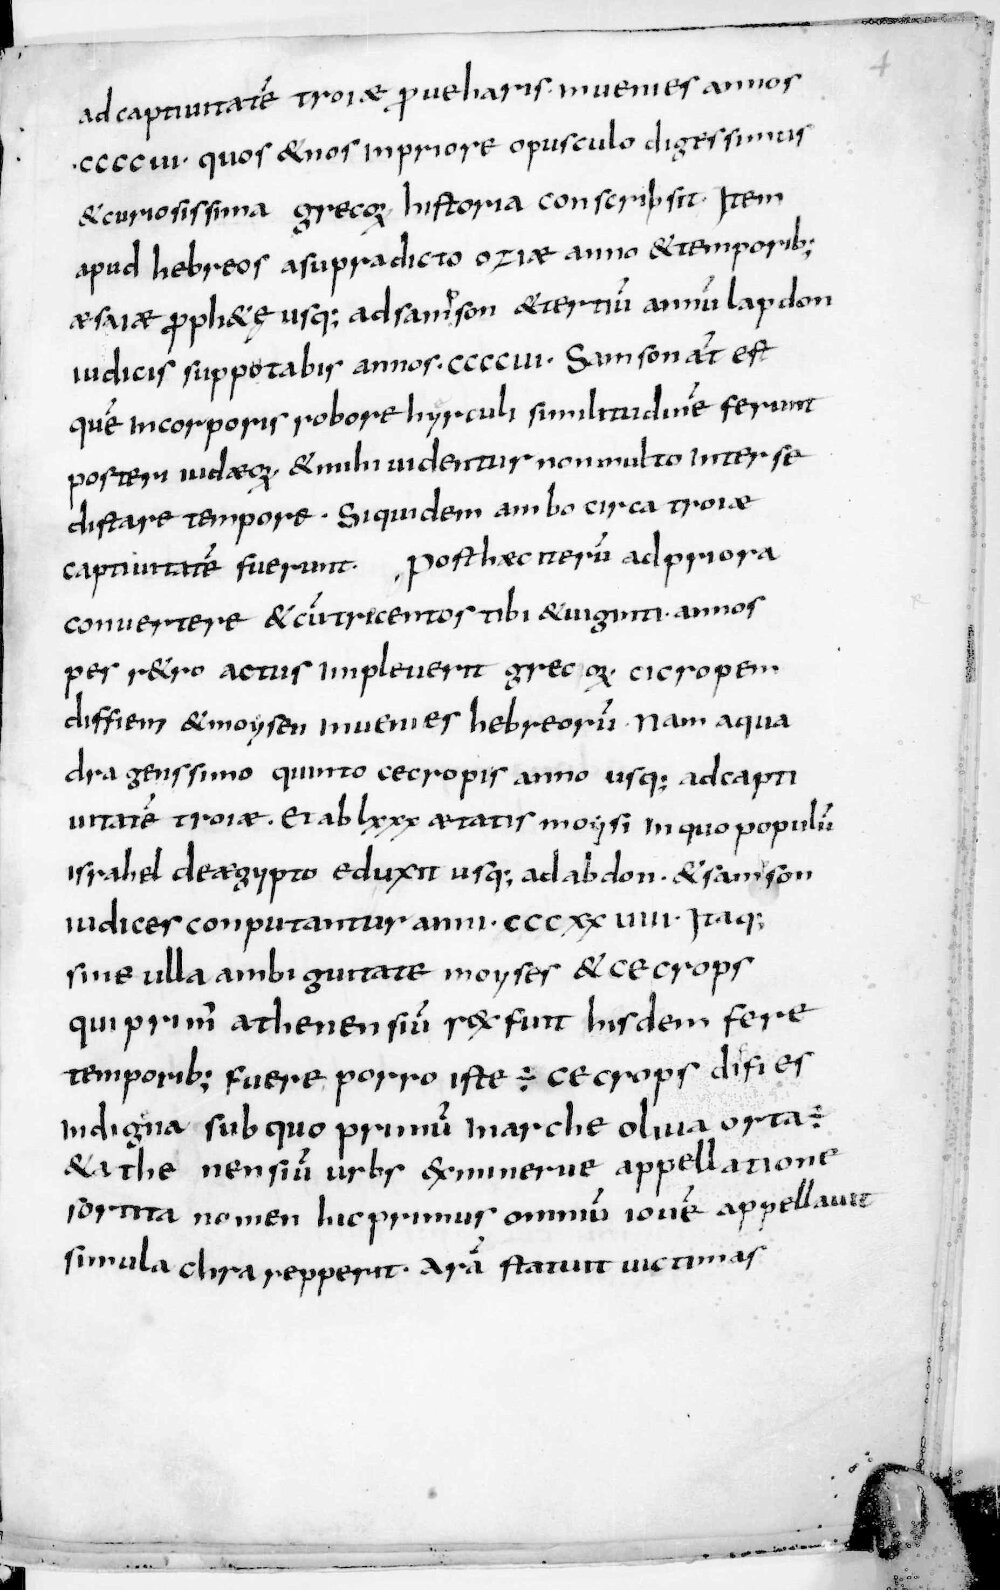 4
ad captiuitatē troiæ ꝓueharis· inuenies annos
·ccccui· quos &nos inpriore opusculo digessimus
&curiosissima grecoꝝ historia conscripsit· Item
apud hebreos asupradicto oziæ anno &temporib;
æsaiæ ꝓph&ę usq; adsamson &tertiū annū lapdon
iudicis suppotabis annos·ccccui· Samson aūt est
quē incorporis robore hyrculi similitudinē ferunt
posteri iudæoꝝ· &mihi uidentur nonmulto interse
distare tempore· Siquidem ambo circa troiæ
captiuitatē fuerunt· Posthæc iterū adpriora
conuertere &cūtricentos tibi &uiginti· annos
pes r&ro actus impleuerit grecoꝝ· cicropem
diffiem &moysen inuenies hebreorū· Nam aqua
dragenssimo quinto cecropis anno usq; adcapti
uitatē troiæ· Et ab lxxx ætatis moysi inquo populū
israhel deægypto eduxit usq; adabdon· &samson
iudices conputantur anni· cccxxuiiii· Itaq;
sine ulla ambiguitate moyses &cecrops
qui primū athenensiū rex fuit hisdem fere
temporib; fuere porro iste ÷ cecrops difies
indigna sub quo primū inarche oliua orta÷
&athe nensiū urbs exminerue appellatione
sortita nomen hicprimus omniū iouē appellauit
simulachra repperit· Arā statuit uictimas